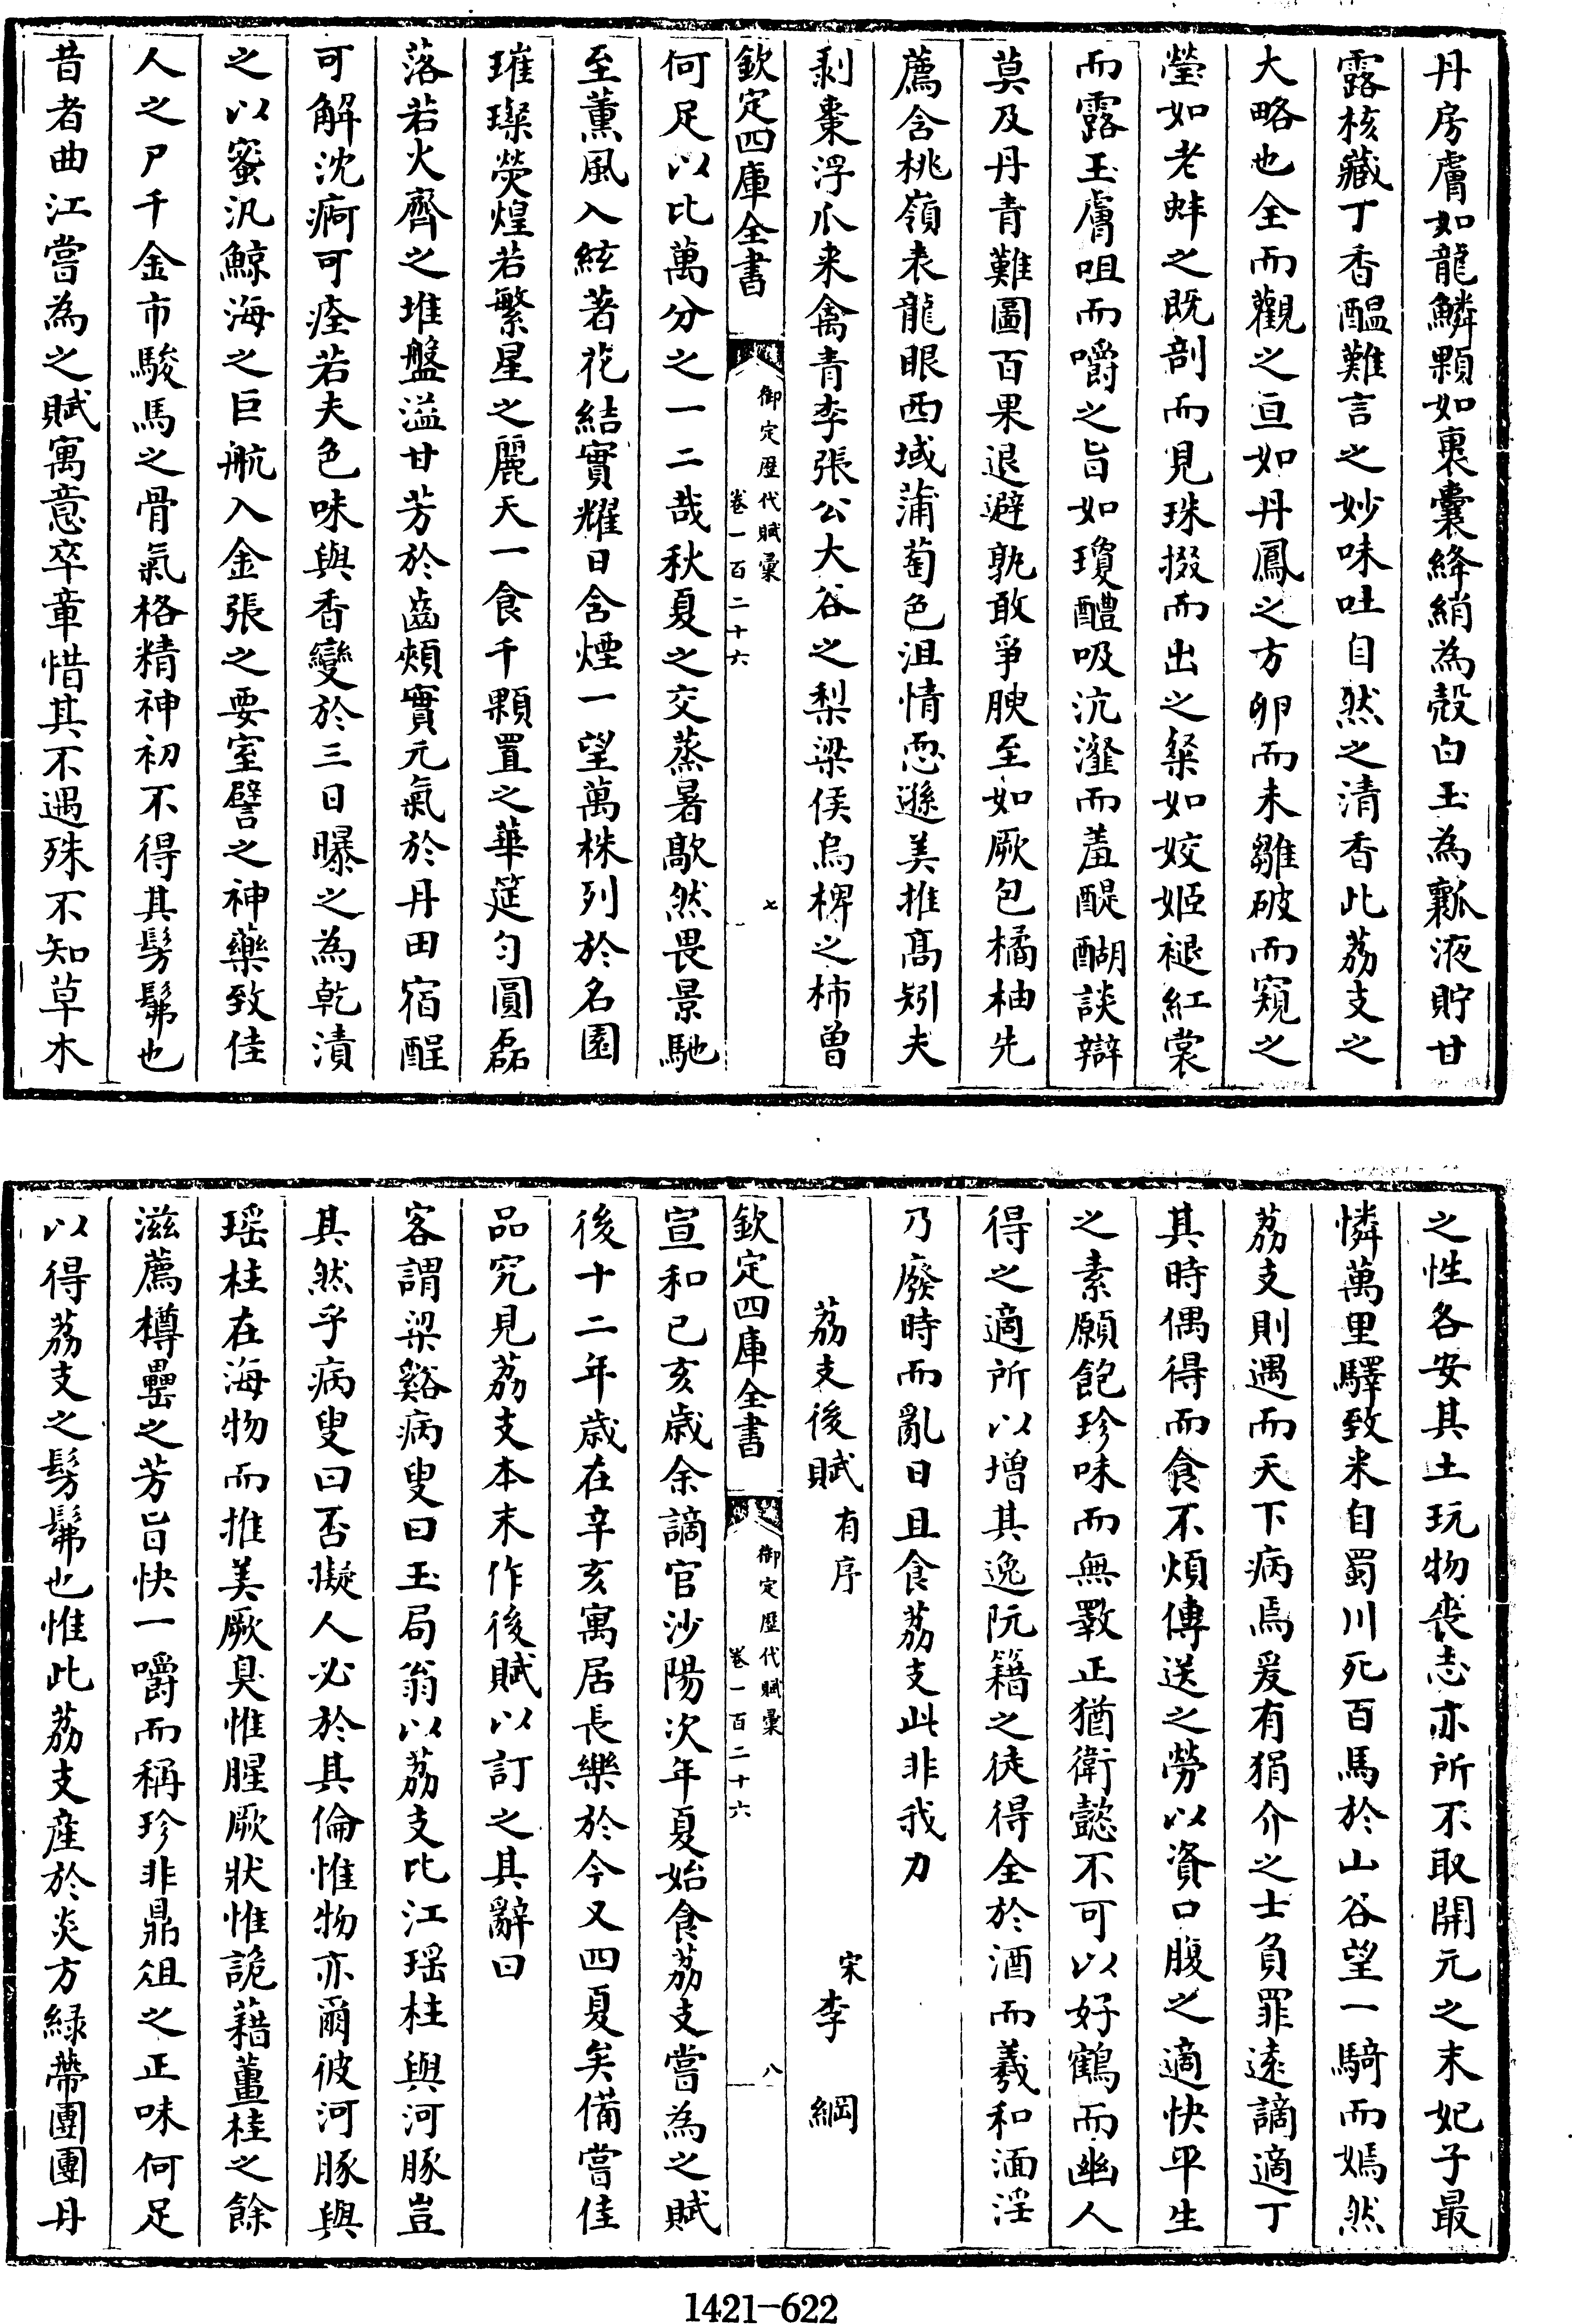 丹房膚如龍鱗顆如裹囊絳綃為殼白玉為瓤液貯甘
露核藏丁香醖難言之妙味吐自然之清香此荔支之
大略也全而觀之亘如丹鳳之方卵而未雛破而窺之
瑩如老蚌之既剖而見珠掇而出之粲如姣姬褪紅裳
而露玉膚咀而嚼之旨如瓊醴吸沆瀣而羞醍醐談辯
莫及丹青難圖百果退避孰敢爭腴至如厥包橘柚先
薦含桃嶺表龍眼西域蒲萄色沮情恧遜美推髙矧夫
剥棗浮瓜来禽青李張公大谷之梨梁侯烏椑之柿曽
欽定四庫全書
御定歴代賦彙
卷一百二十六
七
何足以比萬分之一二哉秋夏之交蒸暑歊然畏景馳
至薰風入絃著花結實耀日含煙一望萬株列於名園
璀璨熒煌若繁星之麗天一食千顆置之華筵勻圓磊
落若火齊之堆盤溢甘芳於齒頰實元氣於丹田宿酲
可解沈痾可痊若夫色味與香變於三日曝之為乾漬
之以蜜汎鯨海之巨航入金張之要室譬之神藥致佳
人之尸千金市駿馬之骨氣格精神初不得其髣髴也
昔者曲江嘗為之賦寓意卒章惜其不遇殊不知草木
之性各安其土玩物喪志亦所不取開元之末妃子最
憐萬里驛致来自蜀川死百馬於山谷望一騎而嫣然
荔支則遇而天下病焉爰有狷介之士負罪遠謫適丁
其時偶得而食不煩傳送之勞以資口腹之適快平生
之素願飽珍味而無斁正猶衛懿不可以好鶴而幽人
得之適所以增其逸阮籍之徒得全於酒而羲和湎淫
乃廢時而亂日且食荔支此非我力
荔支後賦 有序
宋李 綱
欽定四庫全書
御定歴代賦彙
卷一百二十六
八
宣和已亥歳余謫官沙陽次年夏始食荔支嘗為之賦
後十二年歳在辛亥寓居長樂於今又四夏矣備嘗佳
品究見荔支本末作後賦以訂之其辭曰
客謂梁谿病叟曰玉局翁以荔支比江瑶柱與河豚豈
其然乎病叟曰否擬人必於其倫惟物亦爾彼河豚與
瑶柱在海物而推美厥臭惟腥厥狀惟詭藉薑桂之餘
滋薦樽罍之芳旨快一嚼而稱珍非鼎俎之正味何足
以得荔支之髣髴也惟此荔支産於炎方緑蔕團團丹
1421-622